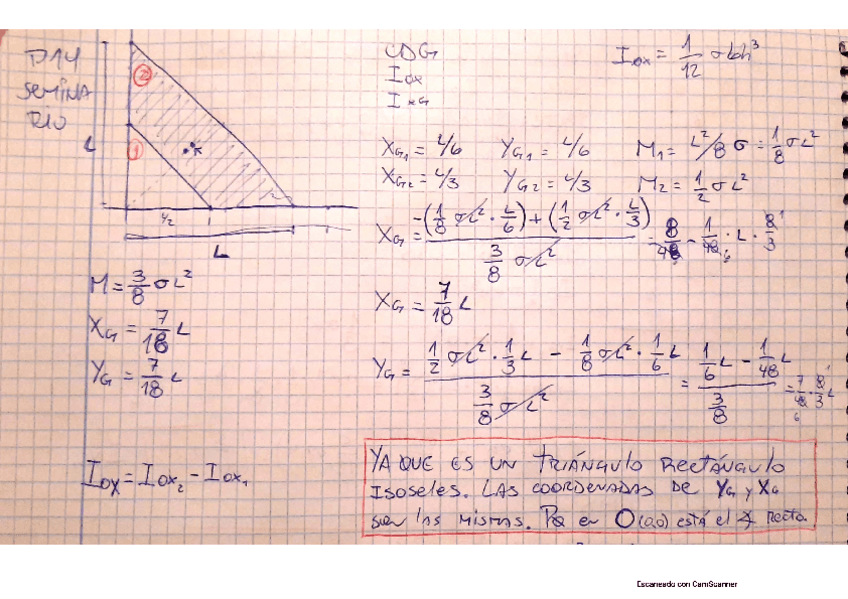 P14
SEMINA
RIO
2
1
L
L/2
L
CDG
Iox
IxG
Iox = 1/12 σbh³
XG1 = L/6 YG1 = L/6 M1 = L²/8 σ = 1/8 σL²
XG2 = L/3 YG2 = L/3 M2 = 1/2 σL²
XG = (-(1/8 σL² · L/6) + (1/2 σL² · L/3)) / (3/8 σL²)
XG = 7/18 L
YG = (1/2 σL² · 1/3 L - 1/8 σL² · 1/6 L) / (3/8 σL²) = (1/6 L - 1/48 L) / (3/8) = 7/48 · 8/3 L
M = 3/8 σL²
XG = 7/18 L
YG = 7/18 L
Iox = Iox2 - Iox1
YA QUE ES UN TRIÁNGULO RECTÁNGULO
ISOSELES. LAS COORDENADAS DE YG y XG
son las mismas. PQ en O(0,0) está el ∡ recto.
Escaneado con CamScanner